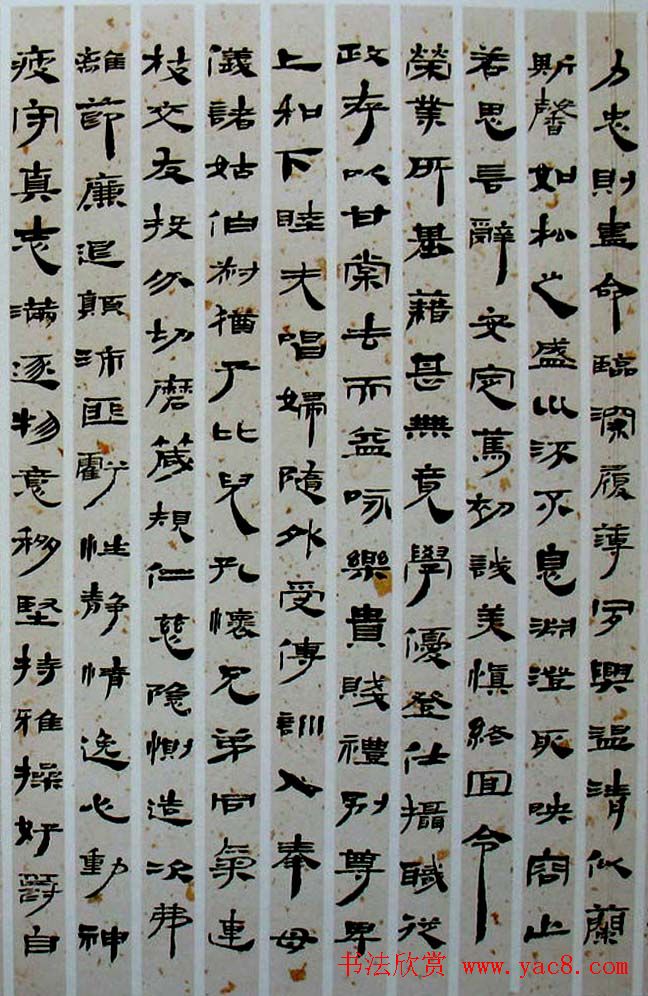 力忠則盡命臨深履薄夙興温清似蘭
斯馨如松之盛川流不息淵澄取映容止
若思言辭安定篤初誠美慎終宜令
榮業所基藉甚無竟學優登仕攝職從
政存以甘棠去而益咏樂貴賤禮別尊卑
上和下睦夫唱婦隨外受傅訓入奉母
儀諸姑伯叔猶子比兒孔懷兄弟同氣連
枝交友投分切磨箴規仁慈隐惻造次弗
離節廉退顛沛匪虧性静情逸心動神
疲守真志滿逐物意移堅持雅操好爵自
书法欣赏 www.yac8.com